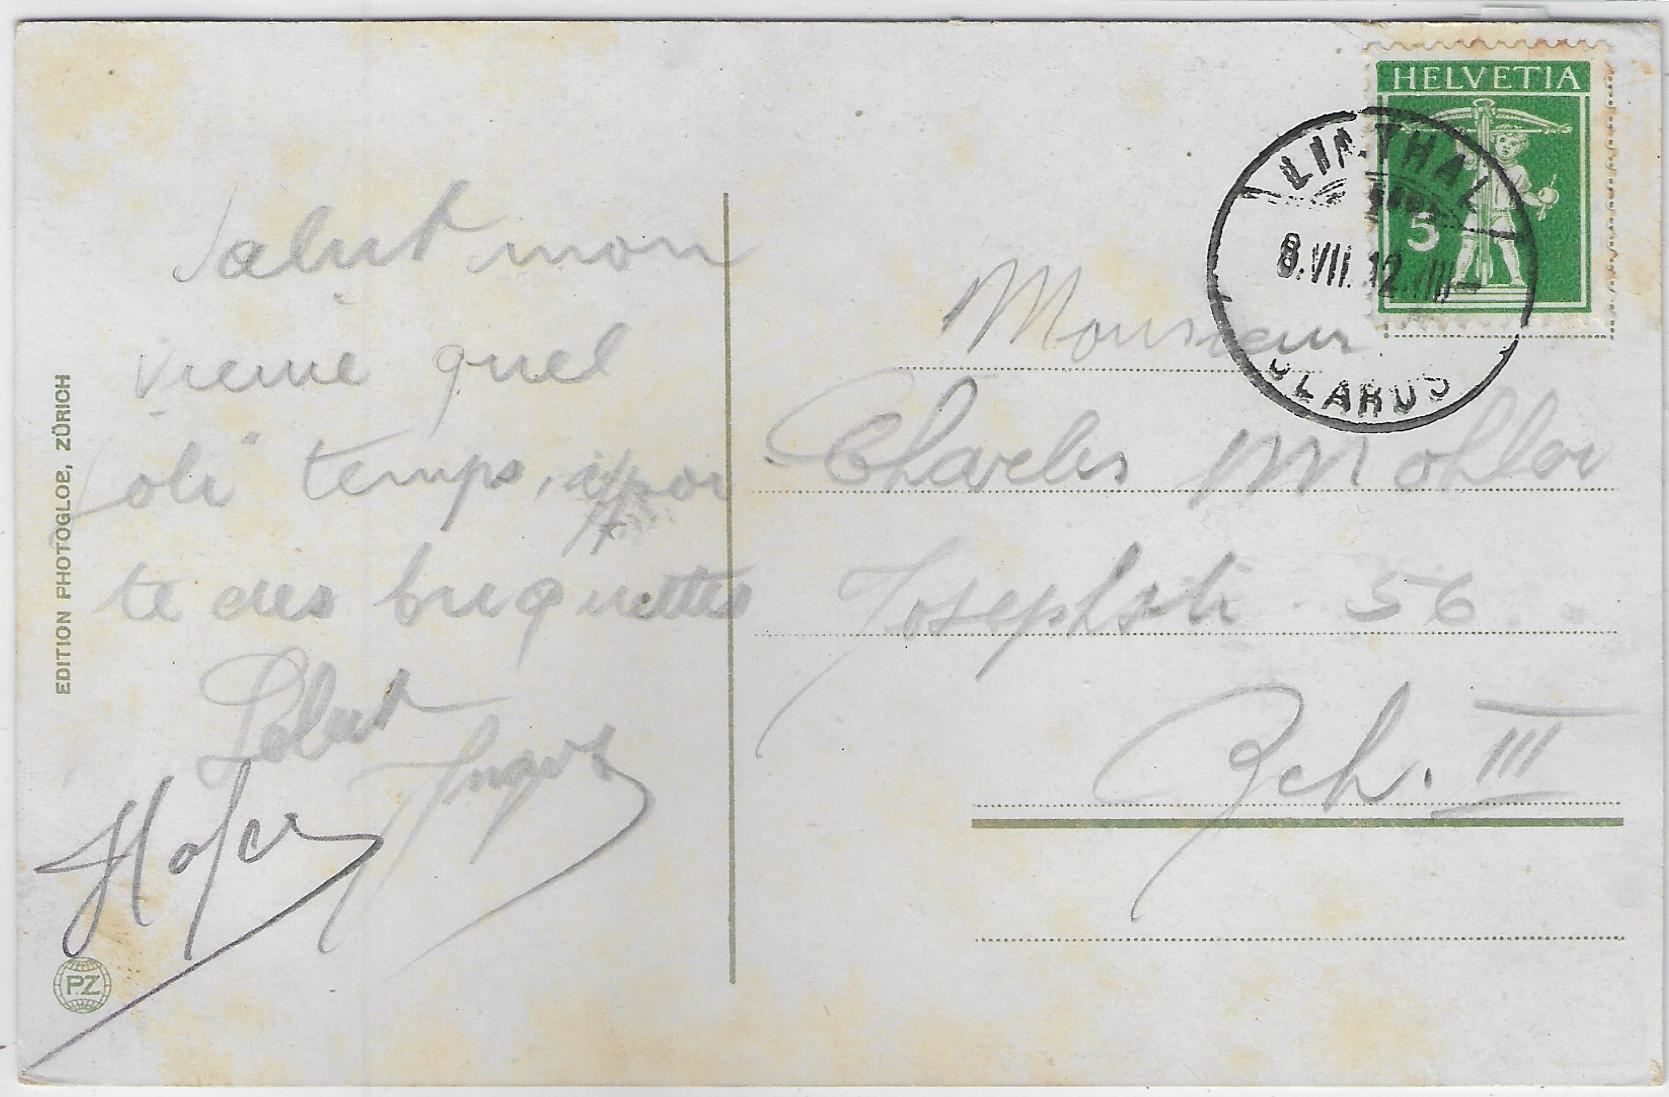 Salut mon
vieme quel
joli temps, appor
te des briquettes
Salut
Hofer
EDITION PHOTOGLOB, ZÜRICH
PZ
HELVETIA
5
LINTHAL
8.VII.12.VIII–
GLARUS
Monsieur
Charles Mohler
Josephstr. 56
Zch. III